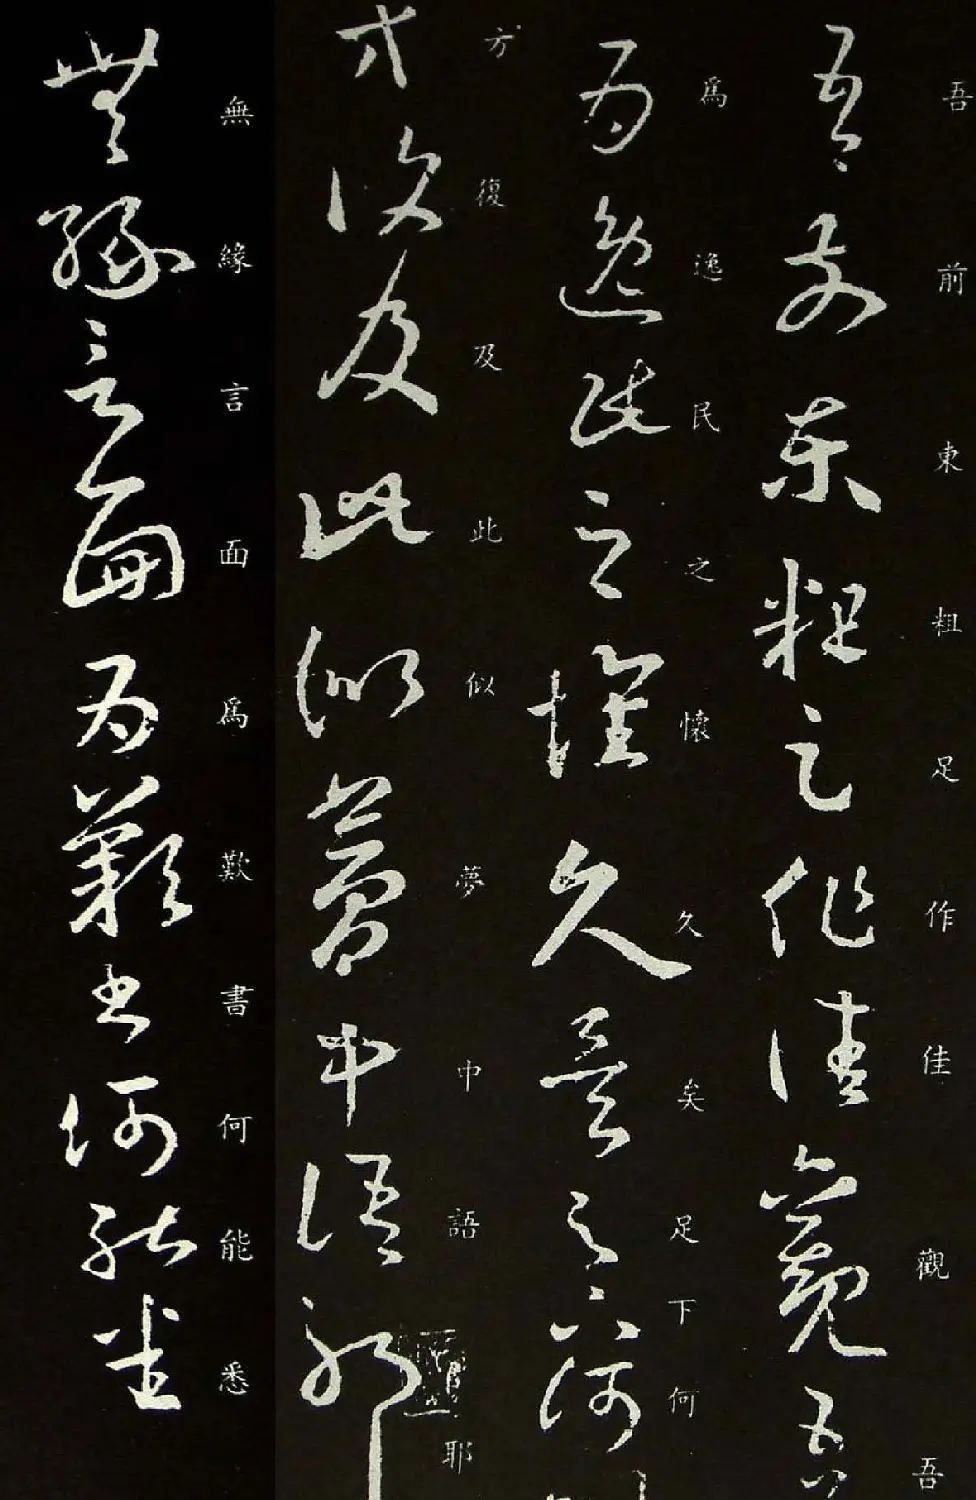 吾前東粗足作佳觀吾
為逸民之懷久矣足下何
方復及此似夢中語耶
無緣言面為歎書何能悉